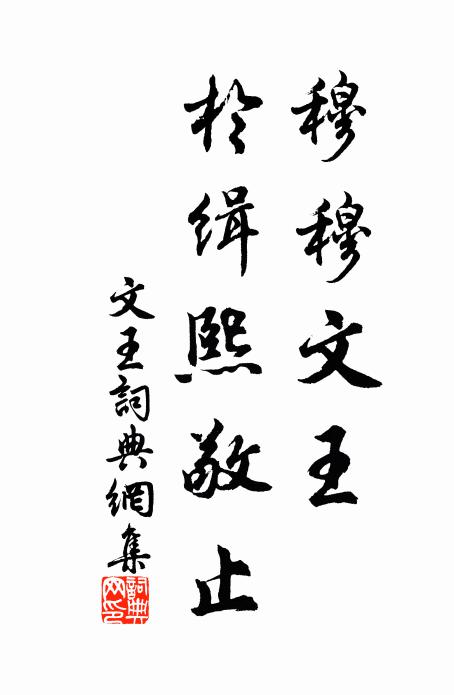 穆穆文王
於缉熙敬止
文王詞典網集
詞典网印